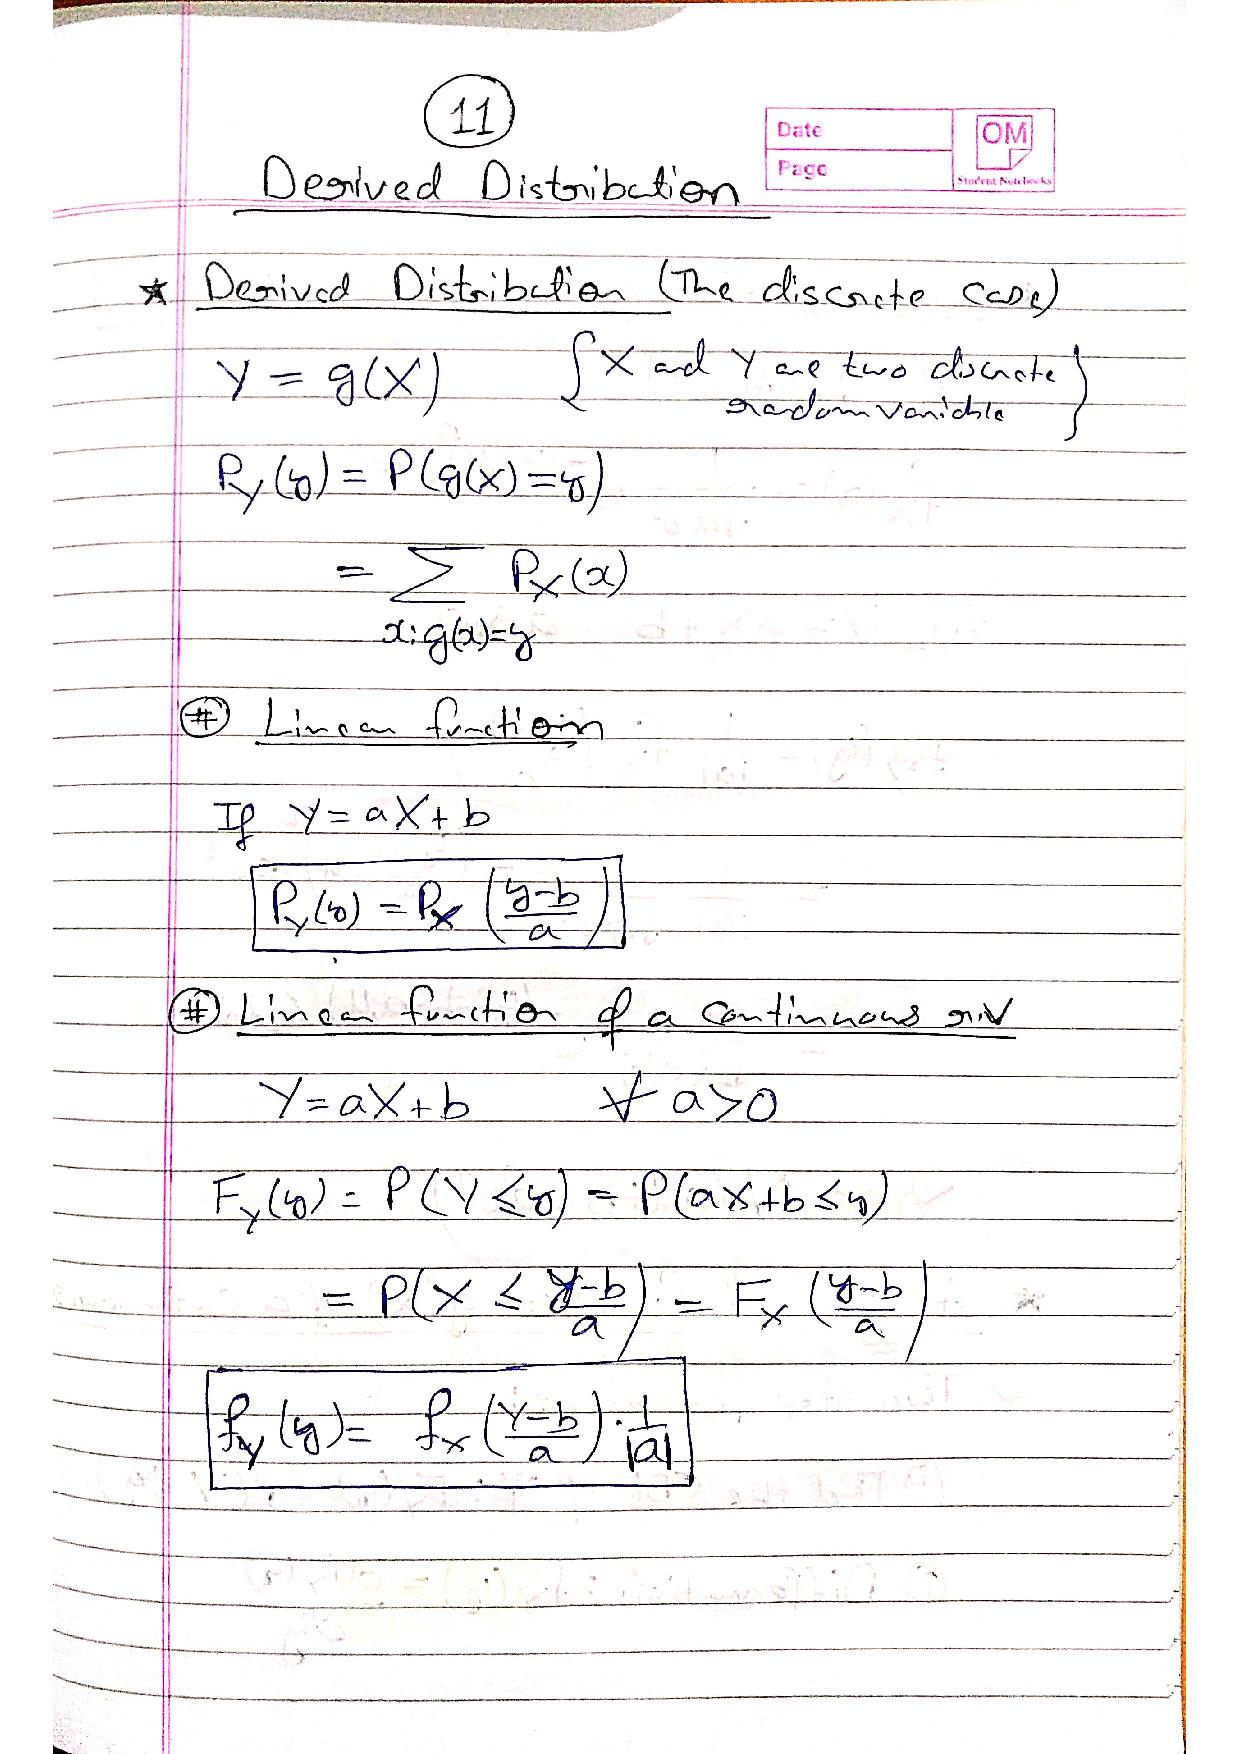 11
Date
OM
Page
Student Notebooks
Derived Distribution
* Derived Distribution (The discrete case)
Y = g(X) { X and Y are two discrete
random variable }
P_Y(y) = P(g(X) = y)
= Σ P_X(x)
x: g(x)=y
# Linear function
If Y = aX + b
P_Y(y) = P_X((y-b)/a)
# Linear function of a continuous r.v
Y = aX + b ∀ a>0
F_Y(y) = P(Y ≤ y) = P(aX + b ≤ y)
= P(X ≤ (y-b)/a) = F_X((y-b)/a)
f_Y(y) = f_X((Y-b)/a) · 1/|a|